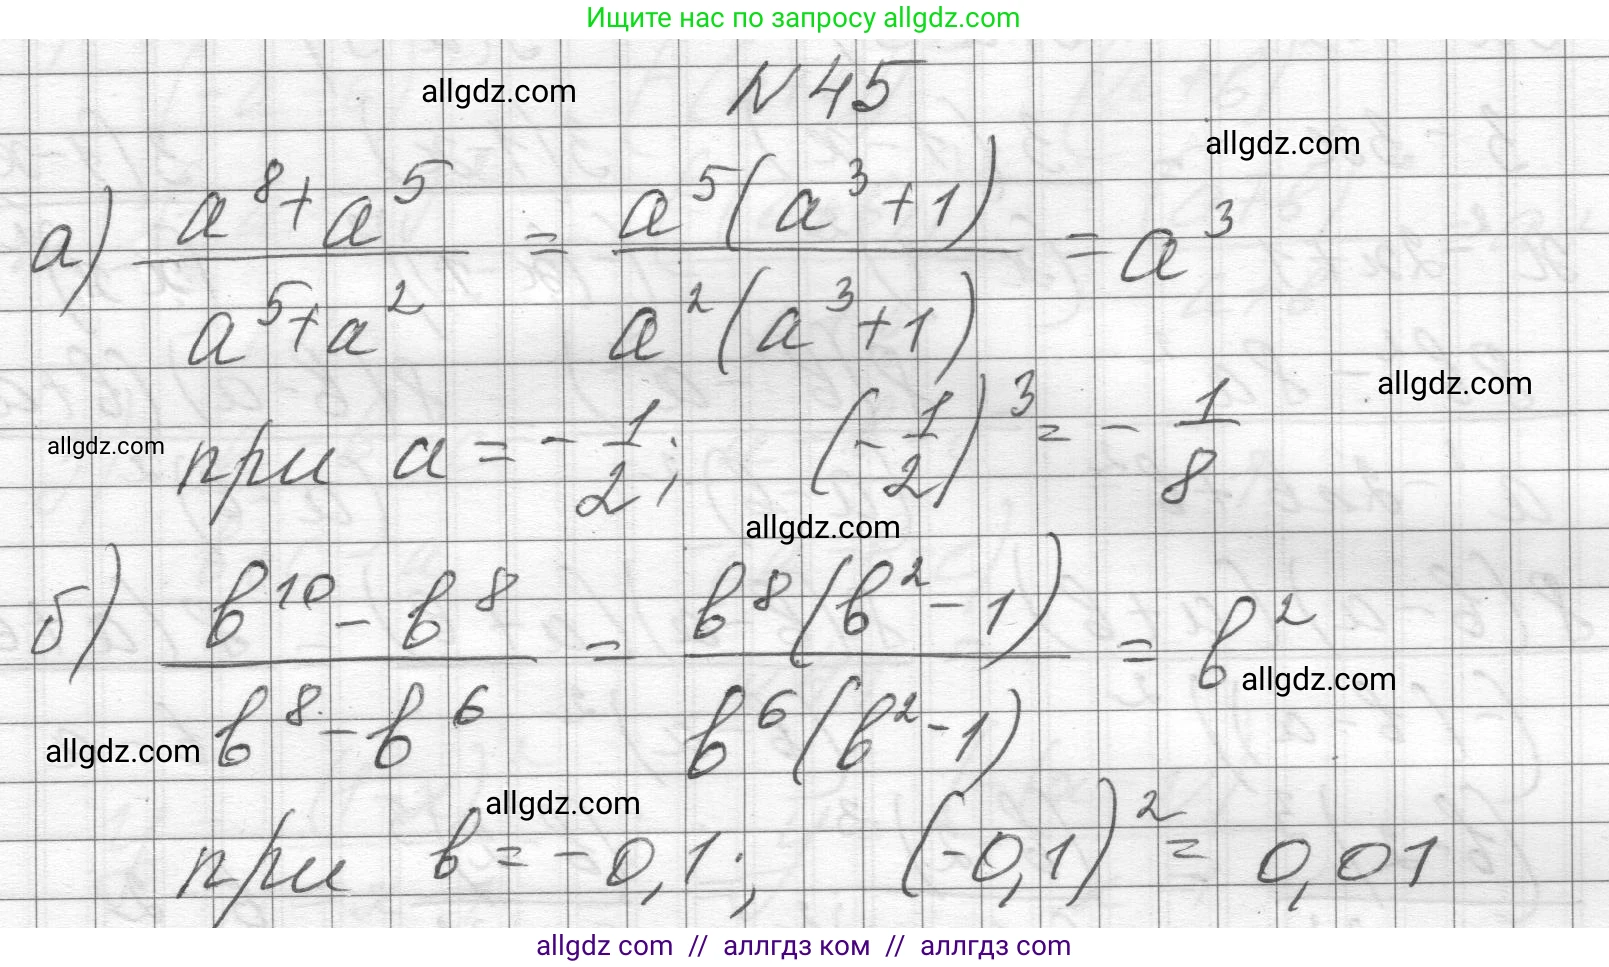 Ищите нас по запросу allgdz.com
allgdz.com
N 45
allgdz.com
а) (a⁸ + a⁵)/(a⁵ + a²) = a⁵(a³ + 1)/a²(a³ + 1) = a³
allgdz.com
allgdz.com
при a = - 1/2; (- 1/2)³ = - 1/8
allgdz.com
б) (b¹⁰ - b⁸)/(b⁸ - b⁶) = b⁸(b² - 1)/b⁶(b² - 1) = b²
allgdz.com
allgdz.com
allgdz.com
при b = - 0,1; (-0,1)² = 0,01
allgdz com // аллгдз ком // аллгдз com